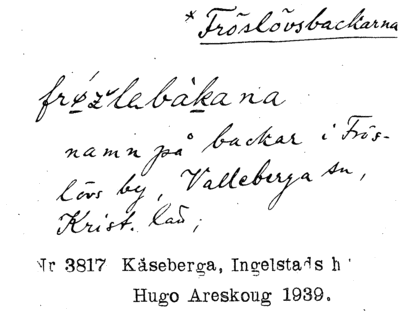 * Fröslövsbackarna
frǿzlebåkana
namn på backar i Frös-
lövs by, Valleberga sn,
Krist. län;
Nr 3817 Kåseberga, Ingelstads h
Hugo Areskoug 1939.